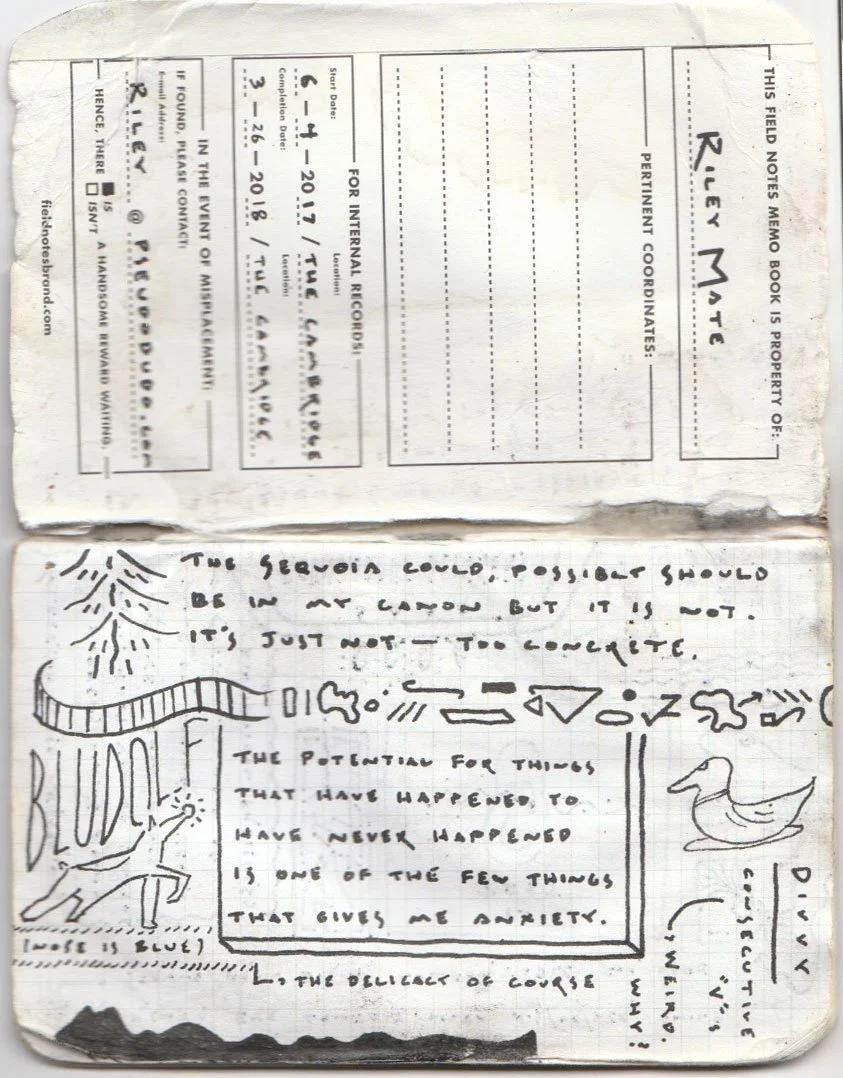 THIS FIELD NOTES MEMO BOOK IS PROPERTY OF:
RILEY MATE
PERTINENT COORDINATES:
FOR INTERNAL RECORDS:
Start Date: Location:
6-4-2017 / THE CAMBRIDGE
Completion Date: Location:
3-26-2018 / THE CAMBRIDGE
IN THE EVENT OF MISPLACEMENT:
IF FOUND, PLEASE CONTACT:
E-mail Address:
RILEY @ PSEUDODUDO.COM
HENCE, THERE IS ISN'T A HANDSOME REWARD WAITING.
fieldnotesbrand.com
THE SEQUOIA COULD, POSSIBLY SHOULD
BE IN MY CANON BUT IT IS NOT.
IT'S JUST NOT — TOO CONCRETE.
BLUDOLF
(NOSE IS BLUE)
THE POTENTIAL FOR THINGS
THAT HAVE HAPPENED TO
HAVE NEVER HAPPENED
IS ONE OF THE FEW THINGS
THAT GIVES ME ANXIETY.
THE DELICACY OF COURSE
DIVVY
CONSECUTIVE
"V"s
WEIRD.
WHY?